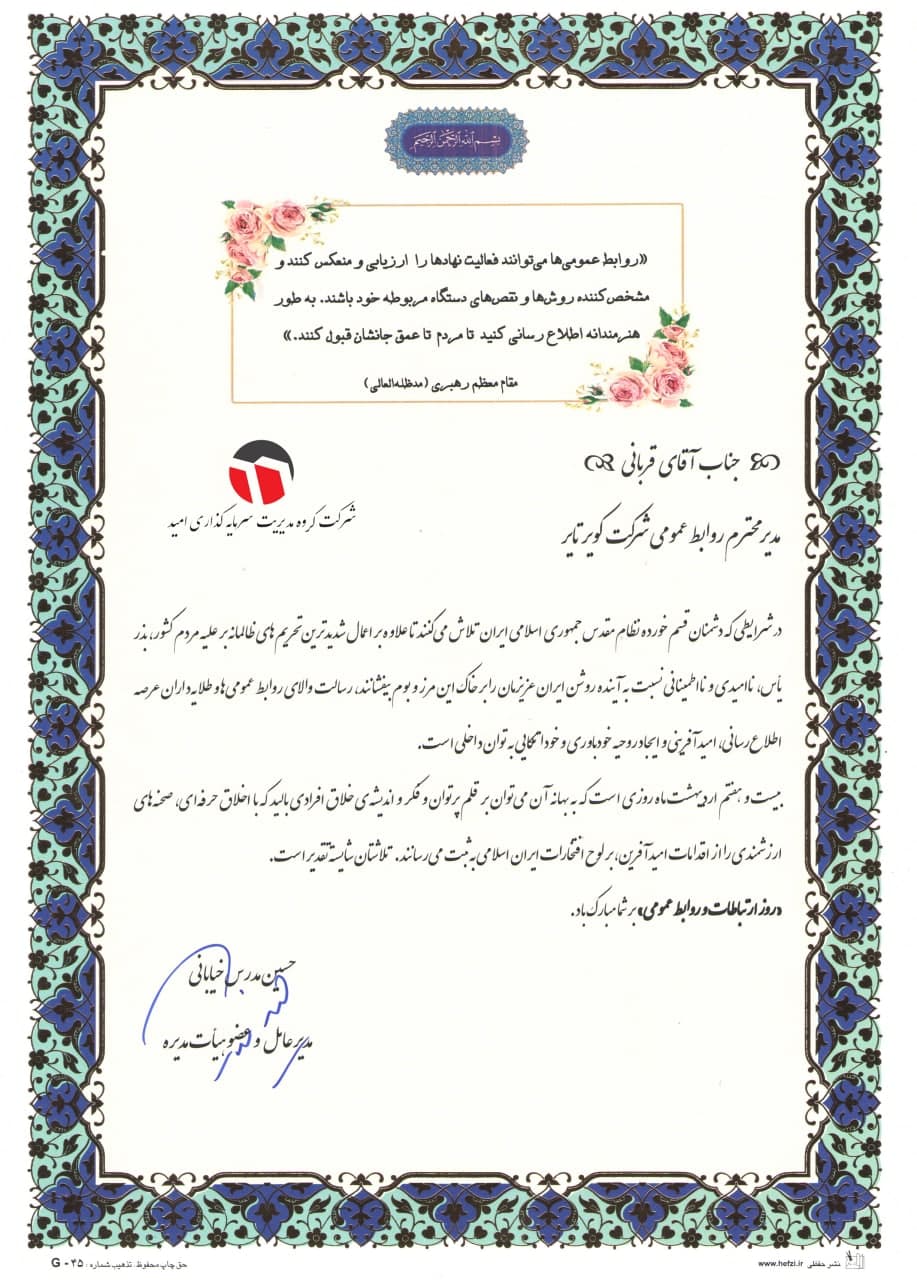 بسم الله الرحمن الرحیم
«روابط عمومی‌ها می‌توانند فعالیت نهادها را ارزیابی و منعکس کنند و
مشخص‌کننده روش‌ها و نقص‌های دستگاه مربوطه خود باشند. به طور
هنرمندانه اطلاع رسانی کنید تا مردم تا عمق جانشان قبول کنند.»
مقام معظم رهبری (مدظله‌العالی)
جناب آقای قربانی
مدیر محترم روابط عمومی شرکت کویر تایر
شرکت گروه مدیریت سرمایه گذاری امید
در شرایطی که دشمنان قسم خورده نظام مقدس جمهوری اسلامی ایران تلاش می‌کنند تا علاوه بر اعمال شدیدترین تحریم های ظالمانه بر علیه مردم کشور، بذر
یأس، ناامیدی و نااطمینانی نسبت به آینده روشن ایران عزیزمان را بر خاک این مرز و بوم بیفشانند، رسالت والای روابط عمومی ها و طلایه داران عرصه
اطلاع رسانی، امید آفرینی و ایجاد روحیه خودباوری و خود اتکایی به توان داخلی است.
بیست و هفتم اردیبهشت ماه روزی است که به بهانه آن می‌توان بر قلم پرتوان و فکر و اندیشه‌ی خلاق افرادی بالید که با اخلاق حرفه ای، صحنه های
ارزشمندی را از اقدامات امیدآفرین، بر لوح افتخارات ایران اسلامی به ثبت می رسانند. تلاشتان شایسته تقدیر است.
«روز ارتباطات و روابط عمومی» بر شما مبارک باد.
حسین مدرس خیابانی
مدیرعامل و عضو هیأت مدیره
حق چاپ محفوظ. تذهیب شماره: G-۴۵
نشر حفظی www.hefzi.ir